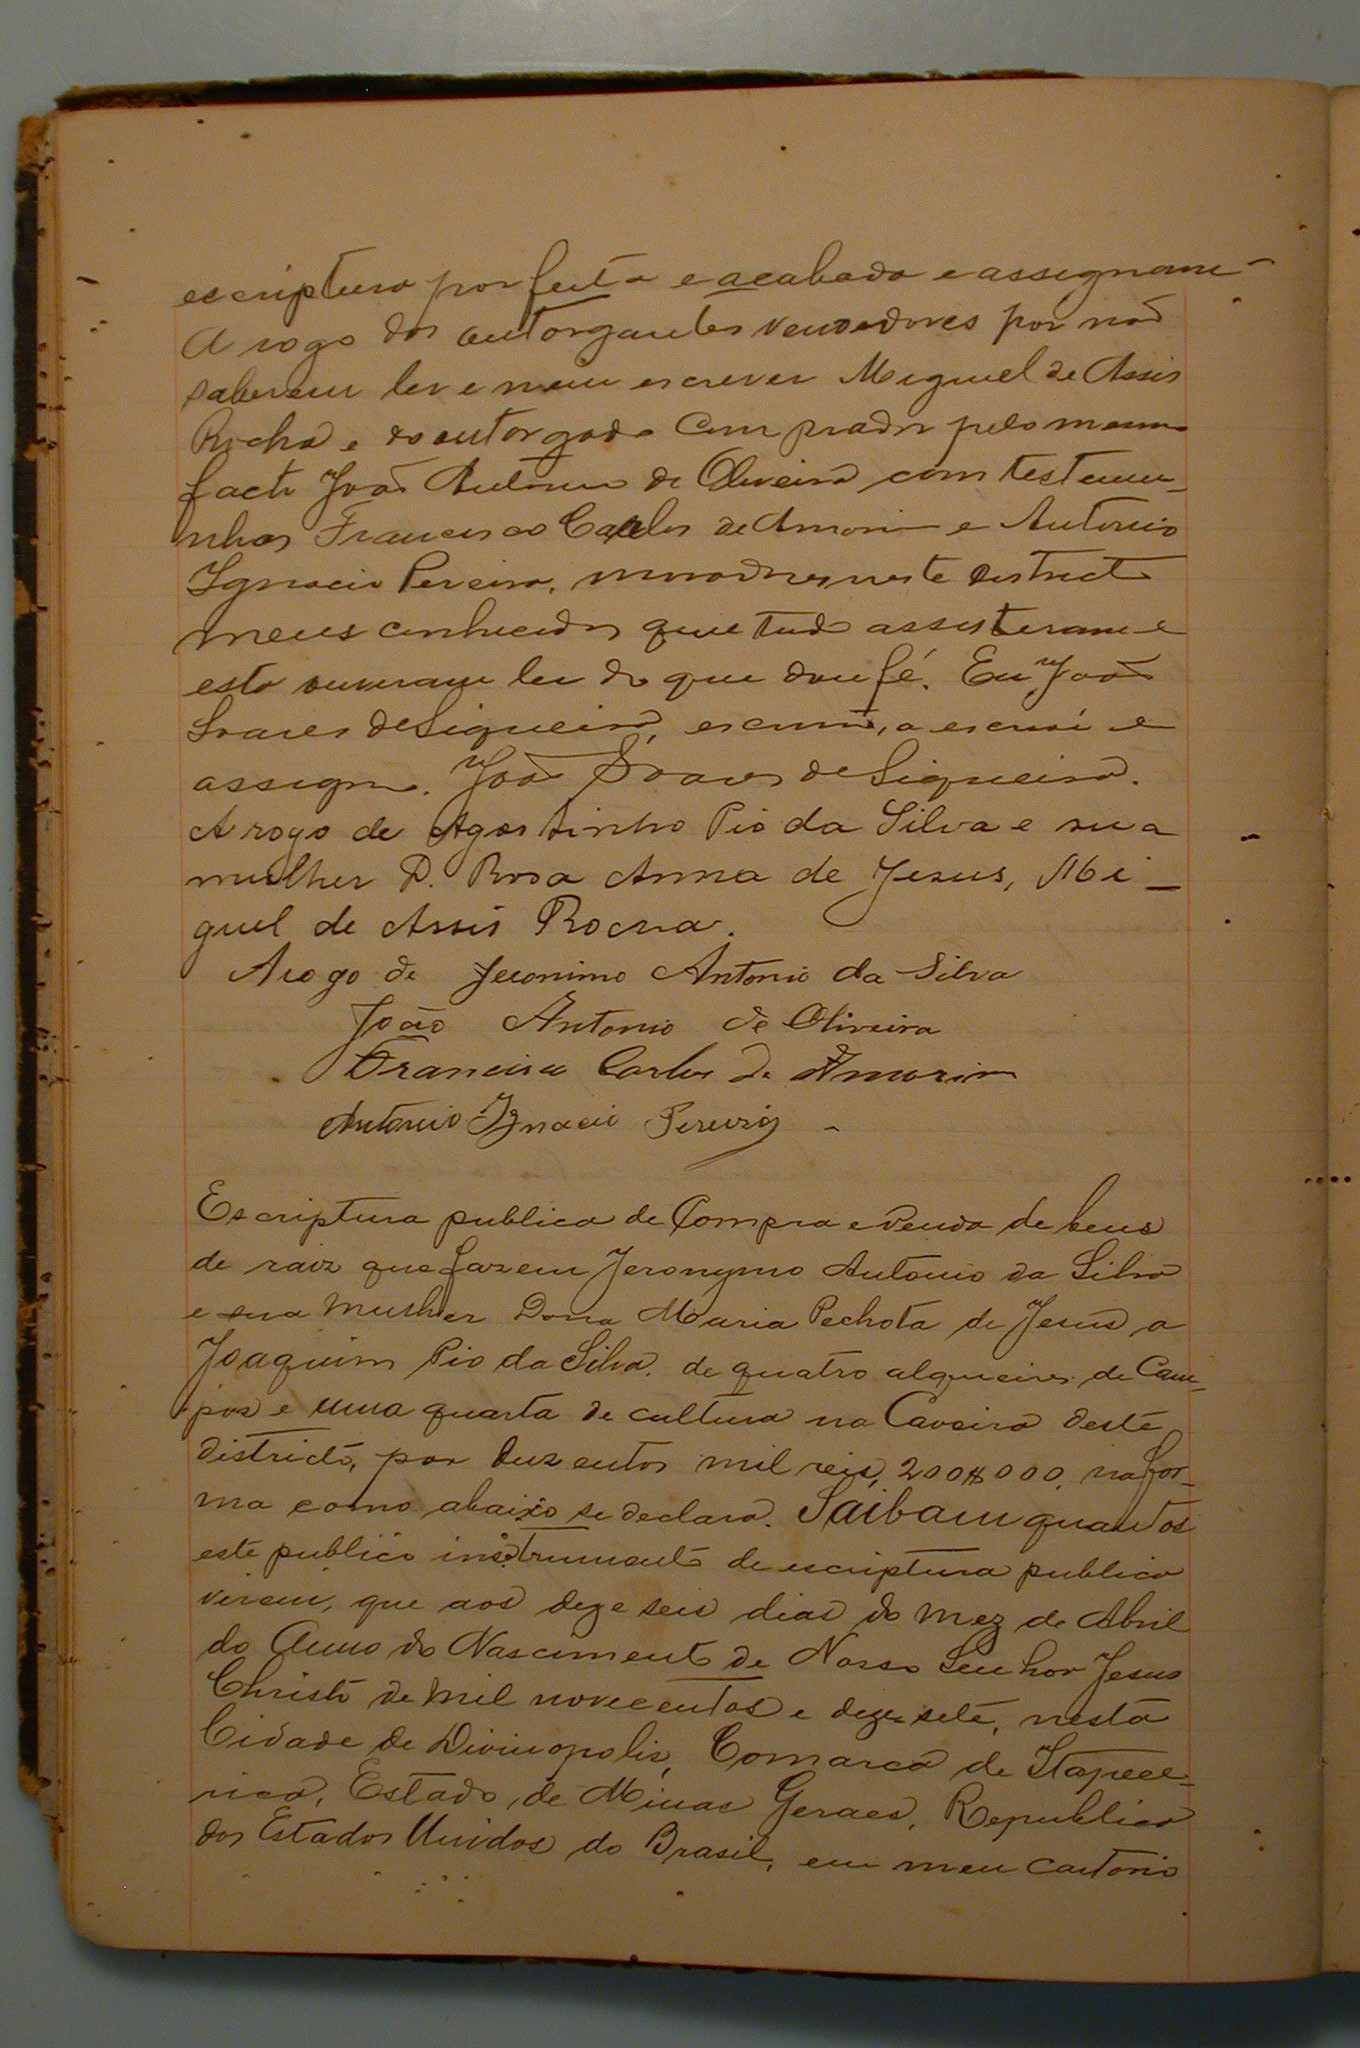 escriptura por feita e acabada e assignam
A rogo dos outorgantes vendedores por não
saberem ler e nem escrever Miguel de Assis
Rocha e do outorgado comprador pelo mesmo
facto João Antonio de Oliveira com testemu-
nhas Francisco Carlos de Amorim e Antonio
Ignacio Pereira, moradores neste districto
meus conhecidos que tudo assisteram e
esta ouviram ler do que dou fé. Eu, João
Soares de Siqueira, escrivão, a escrevi e
assigno. João Soares de Siqueira.
A rogo de Agostinho Pio da Silva e sua
mulher D. Rosa Anna de Jesus, Mi-
guel de Assis Rocha.
A rogo de Jeronimo Antonio da Silva
João Antonio de Oliveira
Francisco Carlos de Amorim
Antonio Ignacio Pereira
Escriptura publica de Compra e venda de bens
de raiz que fazem Jeronymo Antonio da Silva
e sua mulher Dona Maria Pechota de Jesus a
Joaquim Pio da Silva, de quatro alqueires de Cam-
pos e uma quarta de cultura na Caveira deste
districto, por duzentos mil reis, 200$000, na for-
ma como abaixo se declara. Saibam quantos
este publico instrumento de escriptura publica
virem, que aos dezeseis dias do mez de Abril
do Anno do Nascimento de Nosso Senhor Jesus
Christo de mil novecentos e dezesete, nesta
Cidade de Divinopolis, Comarca de Itapece-
rica, Estado de Minas Geraes, Republica
dos Estados Unidos do Brasil, em meu cartorio